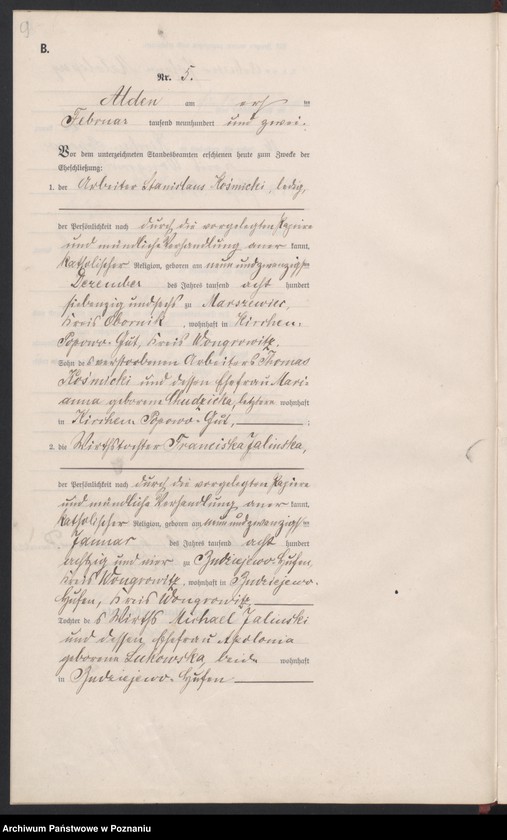 9
B.
Nr. 5.
am
Februar tausend neunhundert und zwei.
Vor dem unterzeichneten Standesbeamten erschienen heute zum Zwecke der
Eheschließung:
1. der Arbeiter Stanislaus Kośnicki, ledig,
der Persönlichkeit nach durch die vorgelegten Papiere
und mündliche Verhandlung aner kannt,
katholischer Religion, geboren am neun und zwanzigsten
Dezember des Jahres tausend acht hundert
siebenzig und sechs zu
Kreis Obornik, wohnhaft in Kirchen-
Popowo-Gut, Kreis Wongrowitz.
Sohn des verstorbenen Arbeiters Thomas
Kośnicki und dessen Ehefrau Mari-
anna geborene Chudzicka, letztere wohnhaft
in Kirchen Popowo-Gut, ;
2. die Wirthstochter Franciska Jalinska,
der Persönlichkeit nach durch die vorgelegten Papiere
und mündliche Verhandlung aner kannt,
katholischer Religion, geboren am neun und zwanzigsten
Januar des Jahres tausend acht hundert
achtzig und vier zu Budziejewo-Hufen,
Kreis Wongrowitz, wohnhaft in Budziejewo-
Hufen, Kreis Wongrowitz,
Tochter des Wirths Michael Jalinski
und dessen Ehefrau Apolonia
geborene Lukowska, beide wohnhaft
in Budziejewo-Hufen
Archiwum Państwowe w Poznaniu